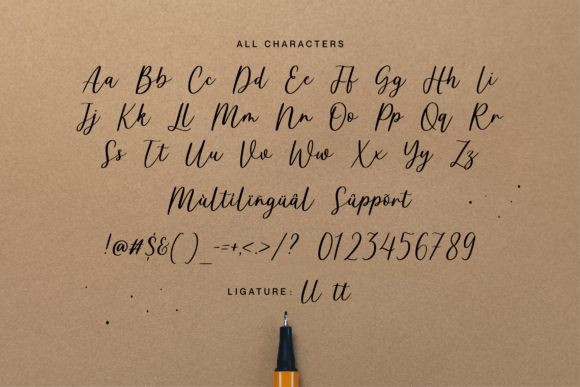 ALL CHARACTERS
Aa Bb Cc Dd Ee Ff Gg Hh Ii
Jj Kk Ll Mm Nn Oo Pp Qq Rr
Ss Tt Uu Vv Ww Xx Yy Zz
Mùltilïngüâl Sûppõrt
!@#$&( )_-=+,<.>/? 0123456789
LIGATURE: ll tt